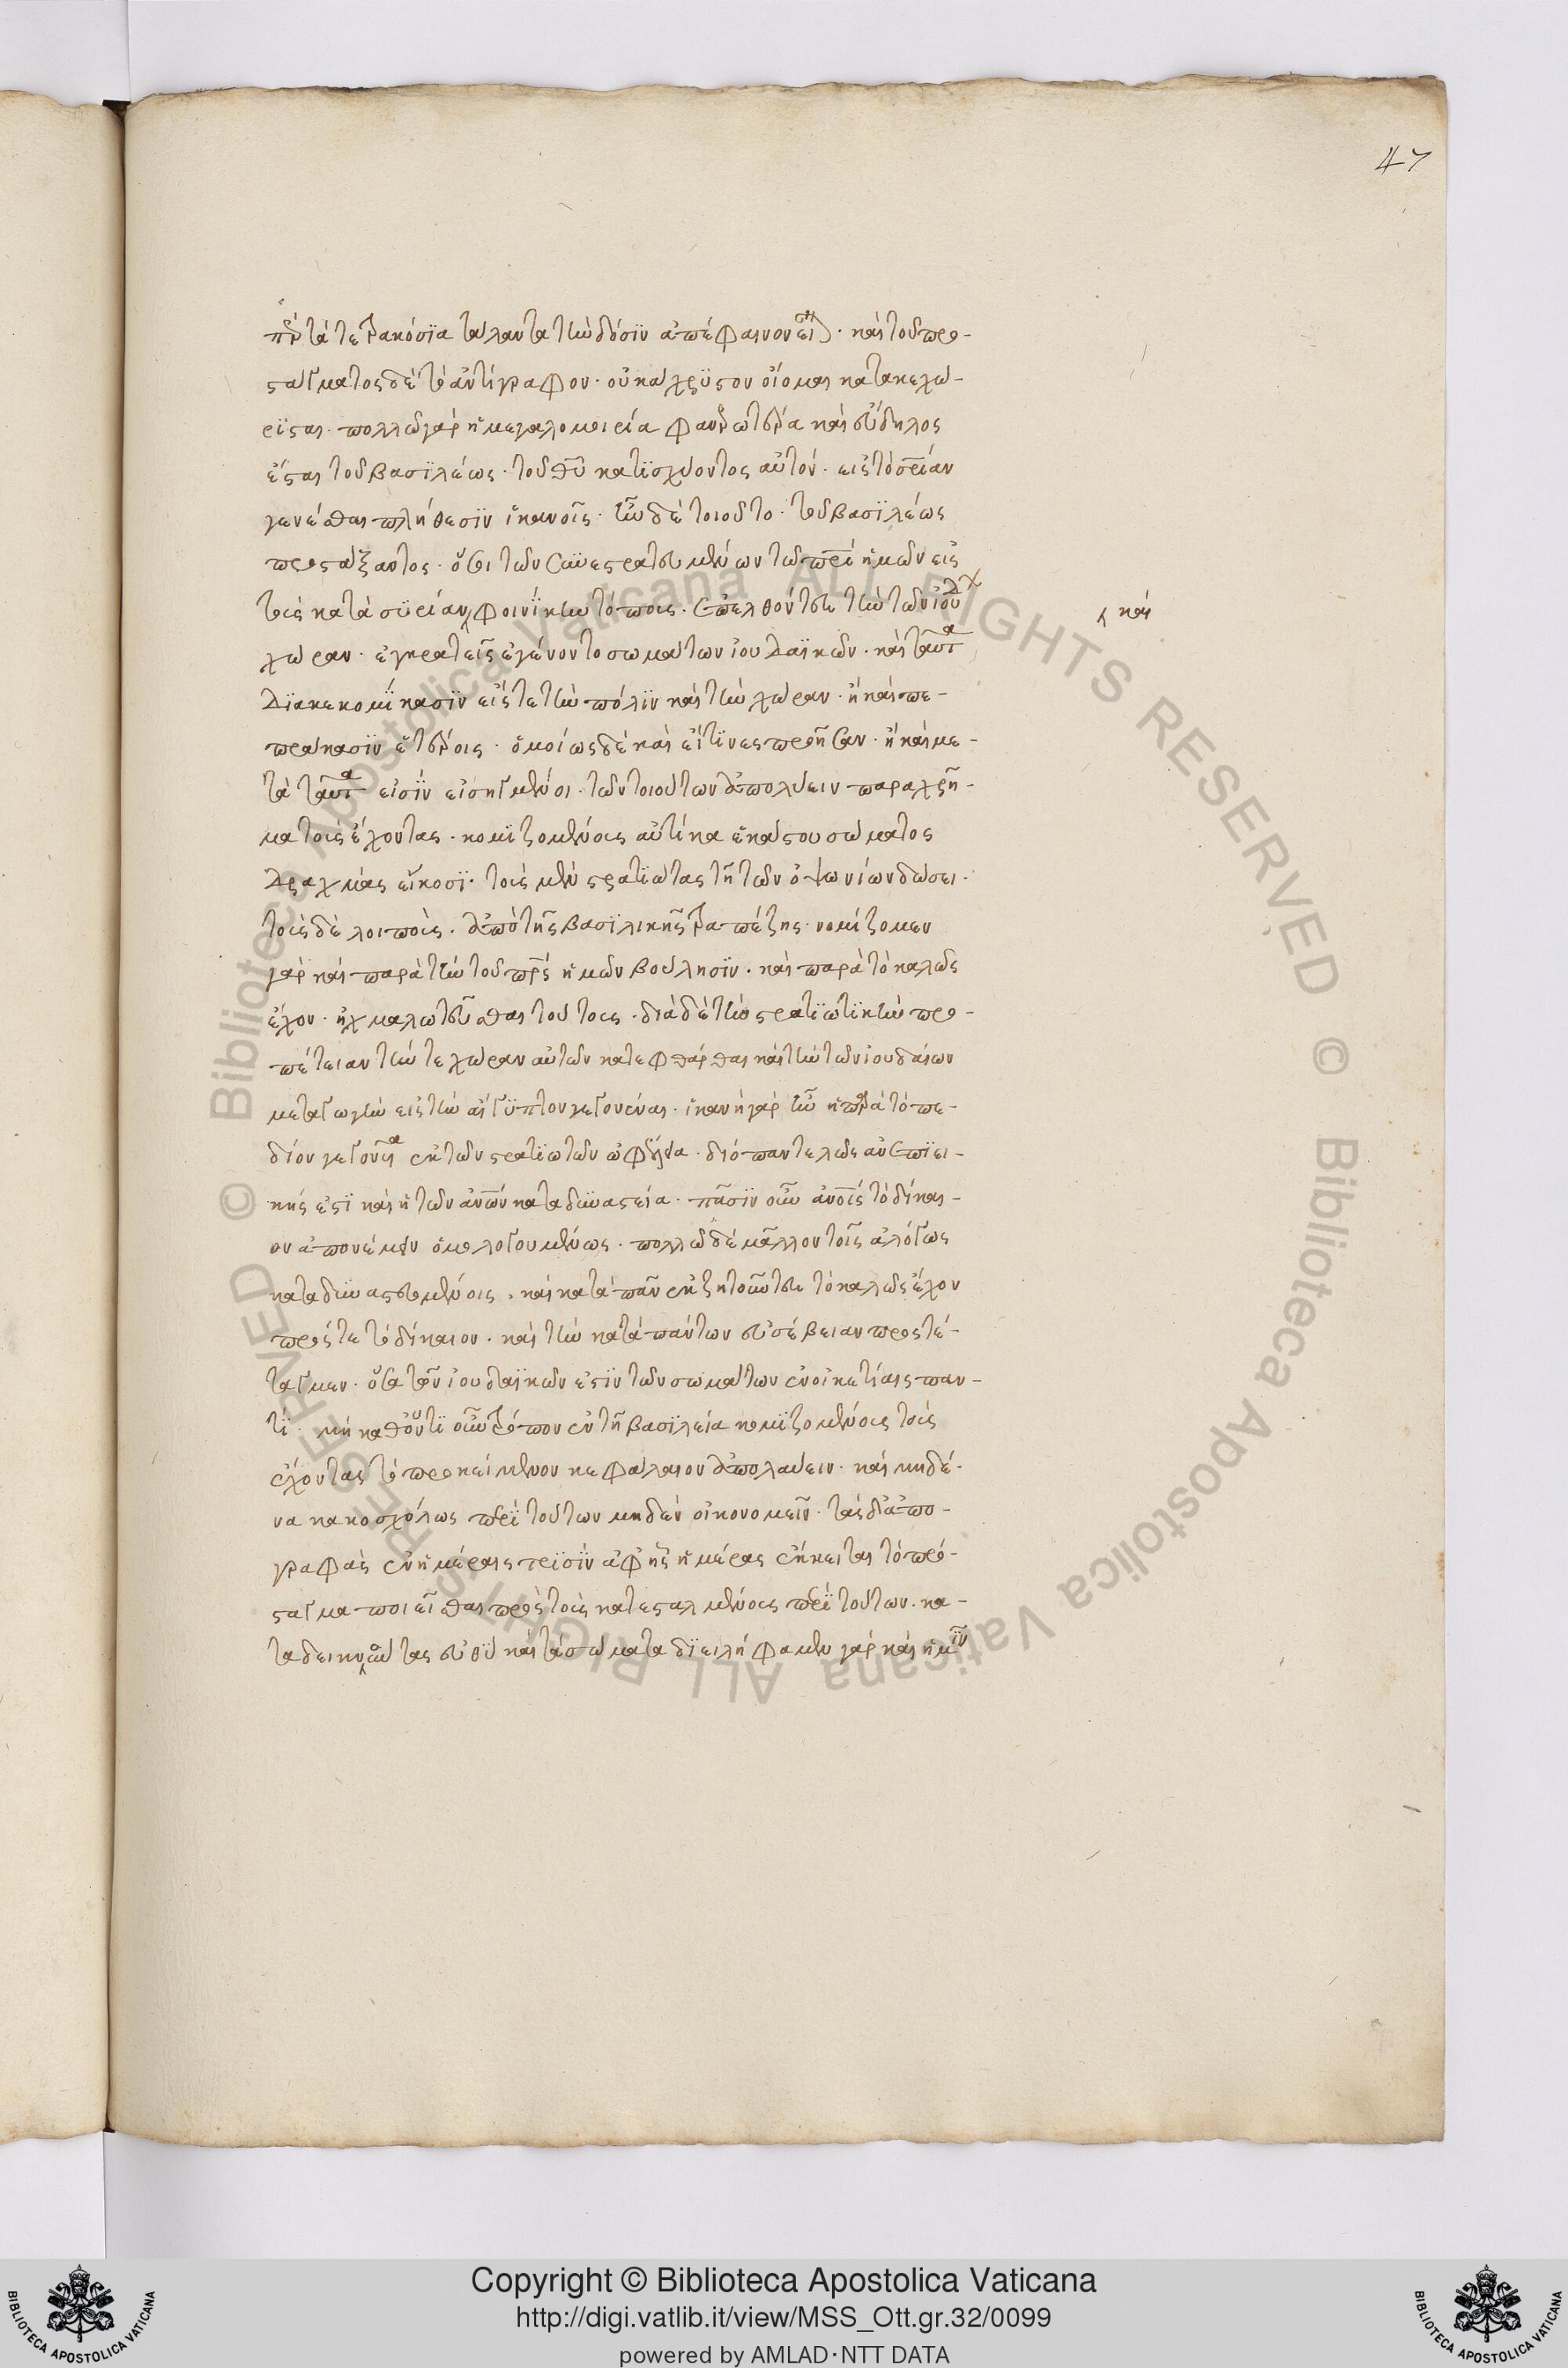 47
πὲρ τὰ τετρακόσϊα τάλαντα τὴν δόσϊν ἀπέφαινον εἶναι· καὶ τοῦ προ-
στάγματος δὲ τὸ ἀντίγραφον· οὐκ ἄχρϋστον οἴομαι κατακεχω-
ρϊσαι· πολλῶ γὰρ ἡ μεγαλομοιρία φανερωτέρα καὶ εὔδηλος
ἔσται τοῦ βασϊλέως· τοῦ θῦ κατϊσχύοντος αὐτόν· εἰς τὸ σρίαν
γενέσθαι πλήθεσϊν ἱκανοῖς· ἦν δὲ τοιοῦτο· τοῦ βασϊλέως
προστάξαντος· ὅσοι τῶν συνεστρατευμένων τῶ πρὶ ἡμῶν εἰς
τοὺς κατὰ συρίαν ‸ φοινίκην τόπους· ἐπελθόντες τὴν τῶν ἰουδ
‸ καὶ
χώραν· ἐγκρατεῖς ἐγένοντο σωμάτων ἰουδαϊκῶν· καὶ ταῦτα
διακεκομίκασϊν εἴς τε τὴν πόλϊν καὶ τὴν χώραν· ἢ καὶ πε-
πράκασϊν ἑτέροις· ὁμοίως δὲ καὶ εἴ τϊνες προῆσαν· ἢ καὶ με-
τὰ ταῦτα εἰσϊν εἰσηγμένοι· τῶν τοιούτων ἀπολύειν παραχρῆ-
μα τοὺς ἔχοντας· κομϊζομένους αὐτίκα ἑκάστου σώματος
δραχμὰς εἴκοσϊ· τοὺς μὲν στρατϊώτας τῆ τῶν ὀψωνίων δώσει·
τοὺς δὲ λοιποὺς· ἀπὸ τῆς βασϊλικῆς τραπέζης· νομίζομεν
γὰρ καὶ παρὰ τὴν τοῦ πρς ἡμῶν βούλησϊν· καὶ παρὰ τὸ καλῶς
ἔχον· ἠχμαλωτεῦσθαι τούτους· διὰ δὲ τὴν στρατϊωτϊκὴν προ-
πέτειαν τήν τε χώραν αὐτῶν κατεφθάρθαι καὶ τὴν τῶν ἰουδαίων
μεταγωγὴν εἰς τὴν αἴγϋπτον γεγονέναι· ἱκανὴ γὰρ ἦν ἡ παρὰ τὸ πε-
δίον γεγονυῖα ἐκ τῶν στρατϊωτῶν ὠφέλεια· διὸ παντελῶς ἀνεπϊει-
κής ἐστϊ καὶ ἡ τῶν ἀνων καταδυναστεία· πᾶσϊν οὖν ἀνοις τὸ δίκαι-
ον ἀπονέμειν ὁμολογουμένως· πολλῶ δὲ μᾶλλον τοῖς ἀλόγως
καταδυναστευμένοις· καὶ κατὰ πᾶν ἐκζητοῦντες τὸ καλῶς ἔχον
πρός τε τὸ δίκαιον· καὶ τὴν κατὰ πάντων εὐσέβειαν προστε-
τάχαμεν· ὅσα τῶν ἰουδαϊκῶν ἐστϊν τῶν σωμάτων ἐν οἰκετίαις παν-
τϊ· μὴ καθ' ὅντϊ οὖν τρόπον ἐν τῆ βασϊλεία κομϊζομένους τοὺς
ἔχοντας τὸ προκείμενον κεφάλαιον ἀπολαύειν· καὶ μηδέ-
να κακοσχόλως περϊ τούτων μηδὲν οἰκονομεῖν· τὰς δ' ἀπο-
γραφὰς ἐν ἡμέραις τρϊσϊν ἀφ' ἧς ἡμέρας ἔκκειται τὸ πρό-
σταγμα ποιεῖσθαι πρὸς τοὺς κατεσταλμένους περϊ τούτων· κα-
ταδεικνύοντας εὐθὺ καὶ τὰ σώματα διειλήφαμεν γὰρ καὶ ἡμϊν
© Biblioteca Apostolica Vaticana ALL RIGHTS RESERVED © Biblioteca Apostolica Vaticana ALL RIGHTS RESERVED
Copyright © Biblioteca Apostolica Vaticana
http://digi.vatlib.it/view/MSS_Ott.gr.32/0099
powered by AMLAD·NTT DATA
BIBLIOTECA APOSTOLICA VATICANA
BIBLIOTECA APOSTOLICA VATICANA